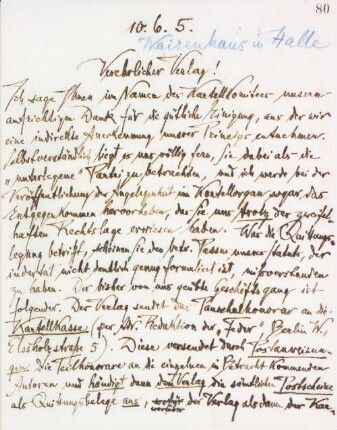 80
10. 6. 5.
Waisenhaus in Halle
Verehrlicher Verlag!
Ich sage Ihnen im Namen des Kartellkomitees unsern
aufrichtigen Dank für die gütliche Einigung, aus der wir
eine indirekte Anerkennung unseres Prinzips entnehmen.
Selbstverständlich liegt es uns völlig fern, Sie dabei als die
„unterlegene" Partei zu betrachten, und ich werde bei der
Veröffentlichung der Angelegenheit im Kartellorgan sogar das
Entgegenkommen hervorheben, das Sie uns trotz der zweifel-
haften Rechtslage erwiesen haben. Was die Quittungs-
legung betrifft, scheinen Sie den betr. Passus unserer Statuten, der
in der tat nicht deutlich genug formuliert ist, missverstanden
zu haben. Der bisher von uns geübte Geschäftsgang ist
folgender. Der Verlag sendet das Pauschalhonorar an die
Kartellkasse (per Adr. Redaktion der „Feder" Berlin W.
Elsholzstraße 5). Diese versendet durch Postanweisun-
gen die Teilhonorare an die einzelnen in Betracht kommenden
Autoren und händigt dann dem Verlag die sämtlichen Postscheine
als Quittungsbelege aus, der Verlag alsdann der Kar-